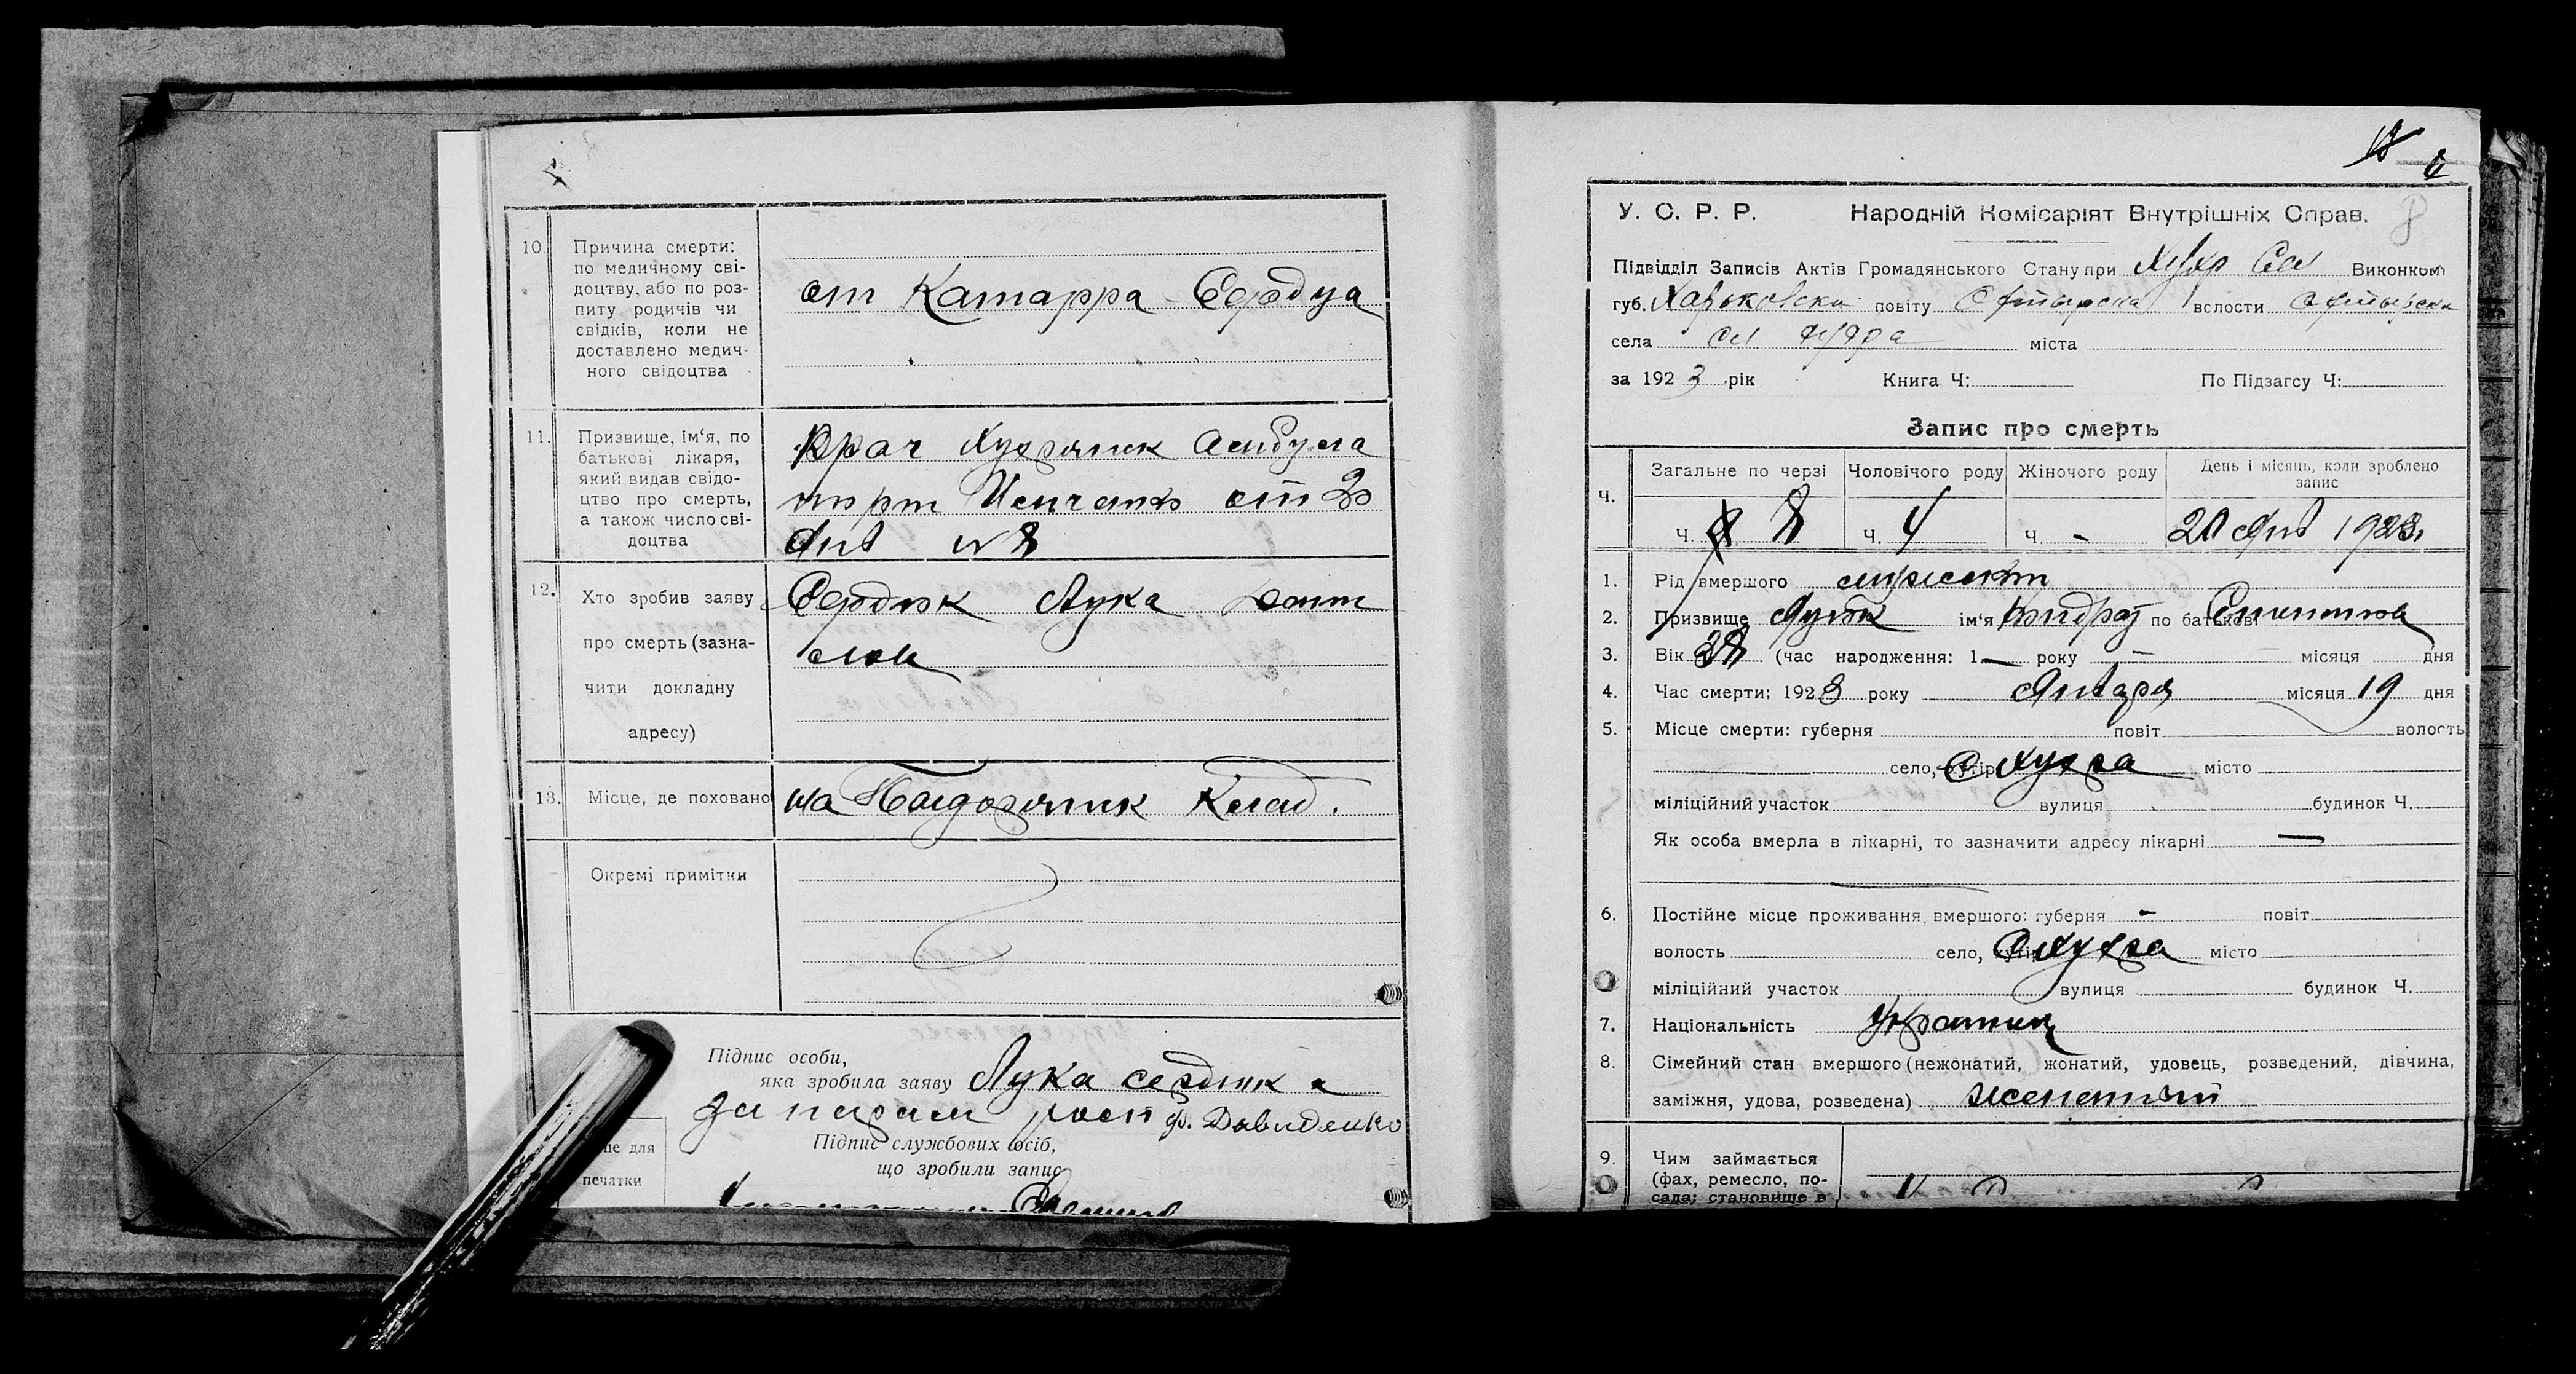 10. Причина смерти:
по медичному сві-
доцтву, або по роз-
питу родичів чи
свідків, коли не
доставлено медич-
ного свідоцтва
от Катарра Сердца
11. Призвище, ім'я, по
батькові лікаря,
який видав свідо-
цтво про смерть,
а також число сві-
доцтва
Врач
от 20
Янв № 8
12. Хто зробив заяву
про смерть (зазна-
чити докладну
адресу)
Сердюк Лука
13. Місце, де поховано
на Клад.
Окремі примітки
Підпис особи,
яка зробила заяву Лука Сердюк а
Ф. Давиденко
Підпис службових осіб,
що зробили запис
печатки
6
8
У. С. Р. Р. Народній Комісаріят Внутрішніх Справ.
Підвідділ Записів Актів Громадянського Стану при Виконком
губ. Харьковска повіту волости
села міста
за 1923 рік Книга Ч: По Підзагсу Ч:
Запис про смерть
Ч. Загальне по черзі Чоловічого роду Жіночого роду День і місяць, коли зроблено
запис
Ч. 8 Ч. 4 Ч. - Янв 1923
1. Рід вмершого
2. Призвище ім'я Кондрат по батькові
3. Вік (час народження: 1— року — місяця дня
4. Час смерти: 1923 року Января місяця 19 дня
5. Місце смерти: губерня повіт волость
село, хутір Хухра місто
міліційний участок вулиця будинок Ч.
Як особа вмерла в лікарні, то зазначити адресу лікарні —
6. Постійне місце проживання вмершого: губерня - повіт
волость село, хутір Хухра місто
міліційний участок вулиця будинок Ч.
7. Національність
8. Сімейний стан вмершого (нежонатий, жонатий, удовець, розведений, дівчина,
заміжня, удова, розведена) женатый
9. Чим займається
(фах, ремесло, по-
сада; становище в